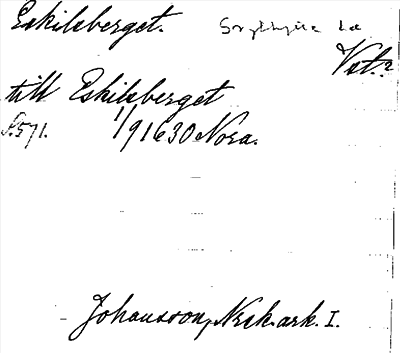 Eskilsberget.
Vst.?
till Eskilsberget
S. 571. 1/9 1630 Nora.
Johansson, Nsk. ark. I.